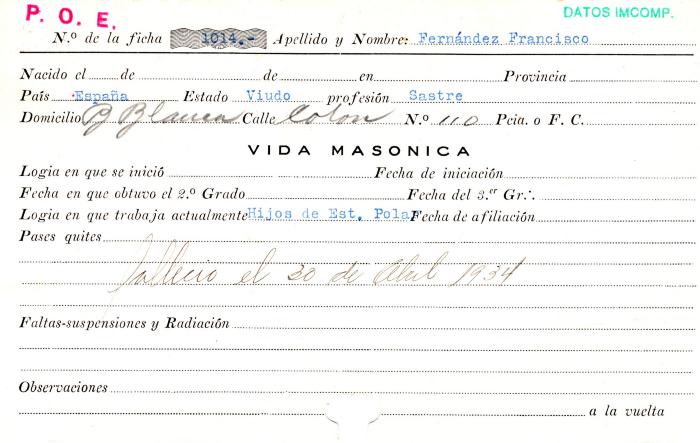 P. O. E.
DATOS IMCOMP.
N.º de la ficha 1014.- Apellido y Nombre: Fernández Francisco
Nacido el de de en Provincia
País España Estado Viudo profesión Sastre
Domicilio B Blanca Calle Colon N.º 110 Pcia. o F. C.
VIDA MASONICA
Logia en que se inició Fecha de iniciación
Fecha en que obtuvo el 2.º Grado Fecha del 3.er Gr∴
Logia en que trabaja actualmente Hijos de Est. Polar Fecha de afiliación
Pases quites
Fallecio el 30 de Abril 1934
Faltas-suspensiones y Radiación
Observaciones
a la vuelta